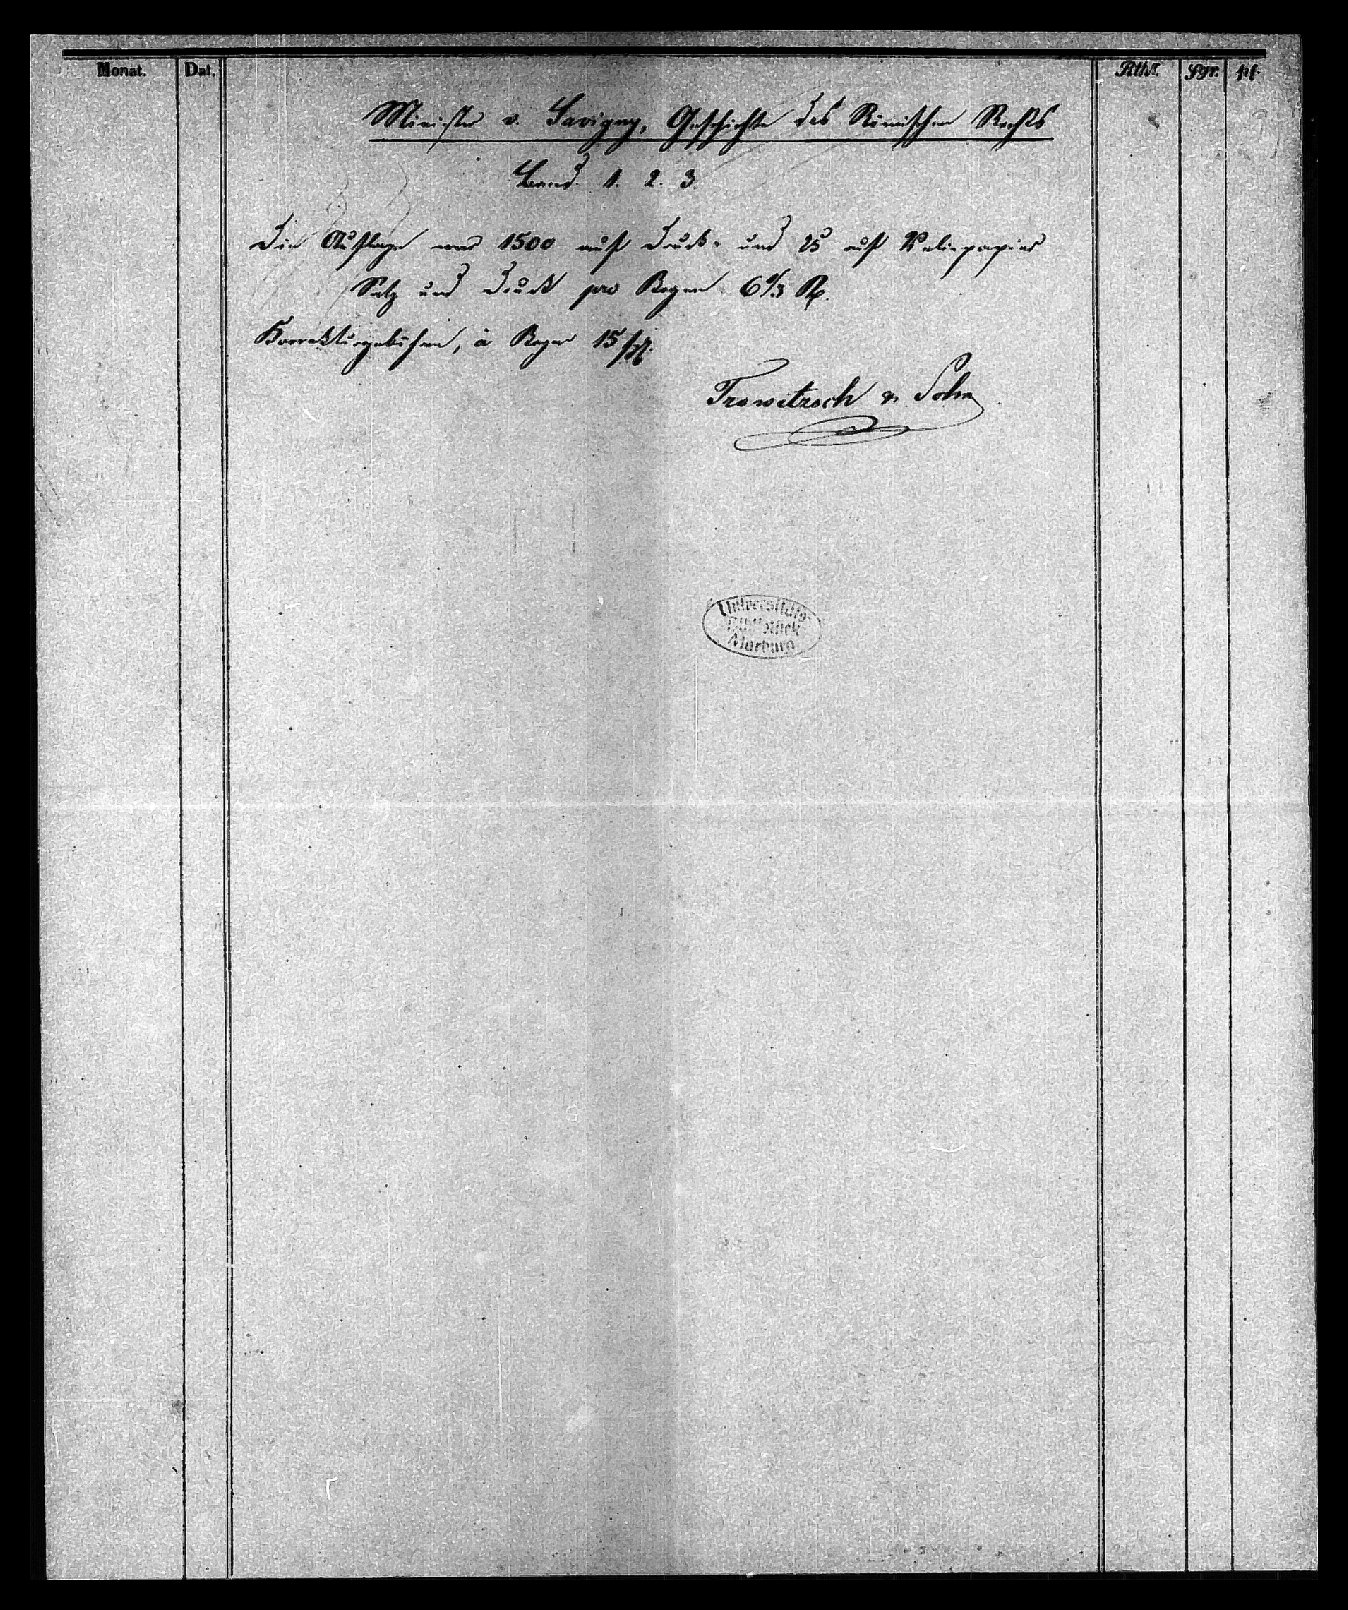 Monat. Dat. Rthr. Sgr. pf.
Minister v. Savigny, Geschichte des Römischen Rechts
Band 1. 2. 3.
Die Auflage war 1500 auf Druck- und 25 auf Velinpapier
Satz und Druck pro Bogen 6 1/3 Rp.
Korrekturgebühren, à Bogen 15 sgl.
Trowitzsch & Sohn
Universitäts-
Bibliothek
Marburg